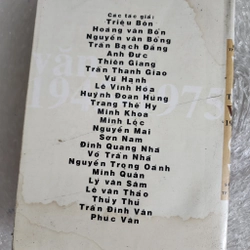 Các tác giả:
Triệu Bôn
Hoàng văn Bổn
Nguyễn văn Bổng
Trần Bạch Đằng
Anh Đức
Thiên Giang
Trần Thanh Giao
Vũ Hạnh
Lê Vĩnh Hòa
Huỳnh Đoan Hùng
Trang Thế Hy
Minh Khoa
Minh Lộc
Nguyễn Mai
Sơn Nam
Đinh Quang Nhã
Võ Trần Nhã
Nguyễn Trọng Oánh
Minh Quân
Lý văn Sâm
Lê văn Thảo
Thủy Thủ
Trần Đình Vân
Phúc Vân